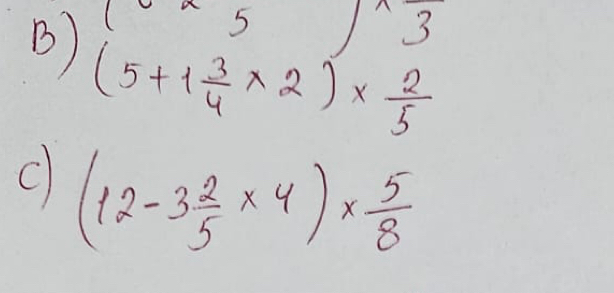 5 ) × 3
B) (5 + 1 3/4 × 2) × 2/5
C) (12 - 3 2/5 × 4) × 5/8